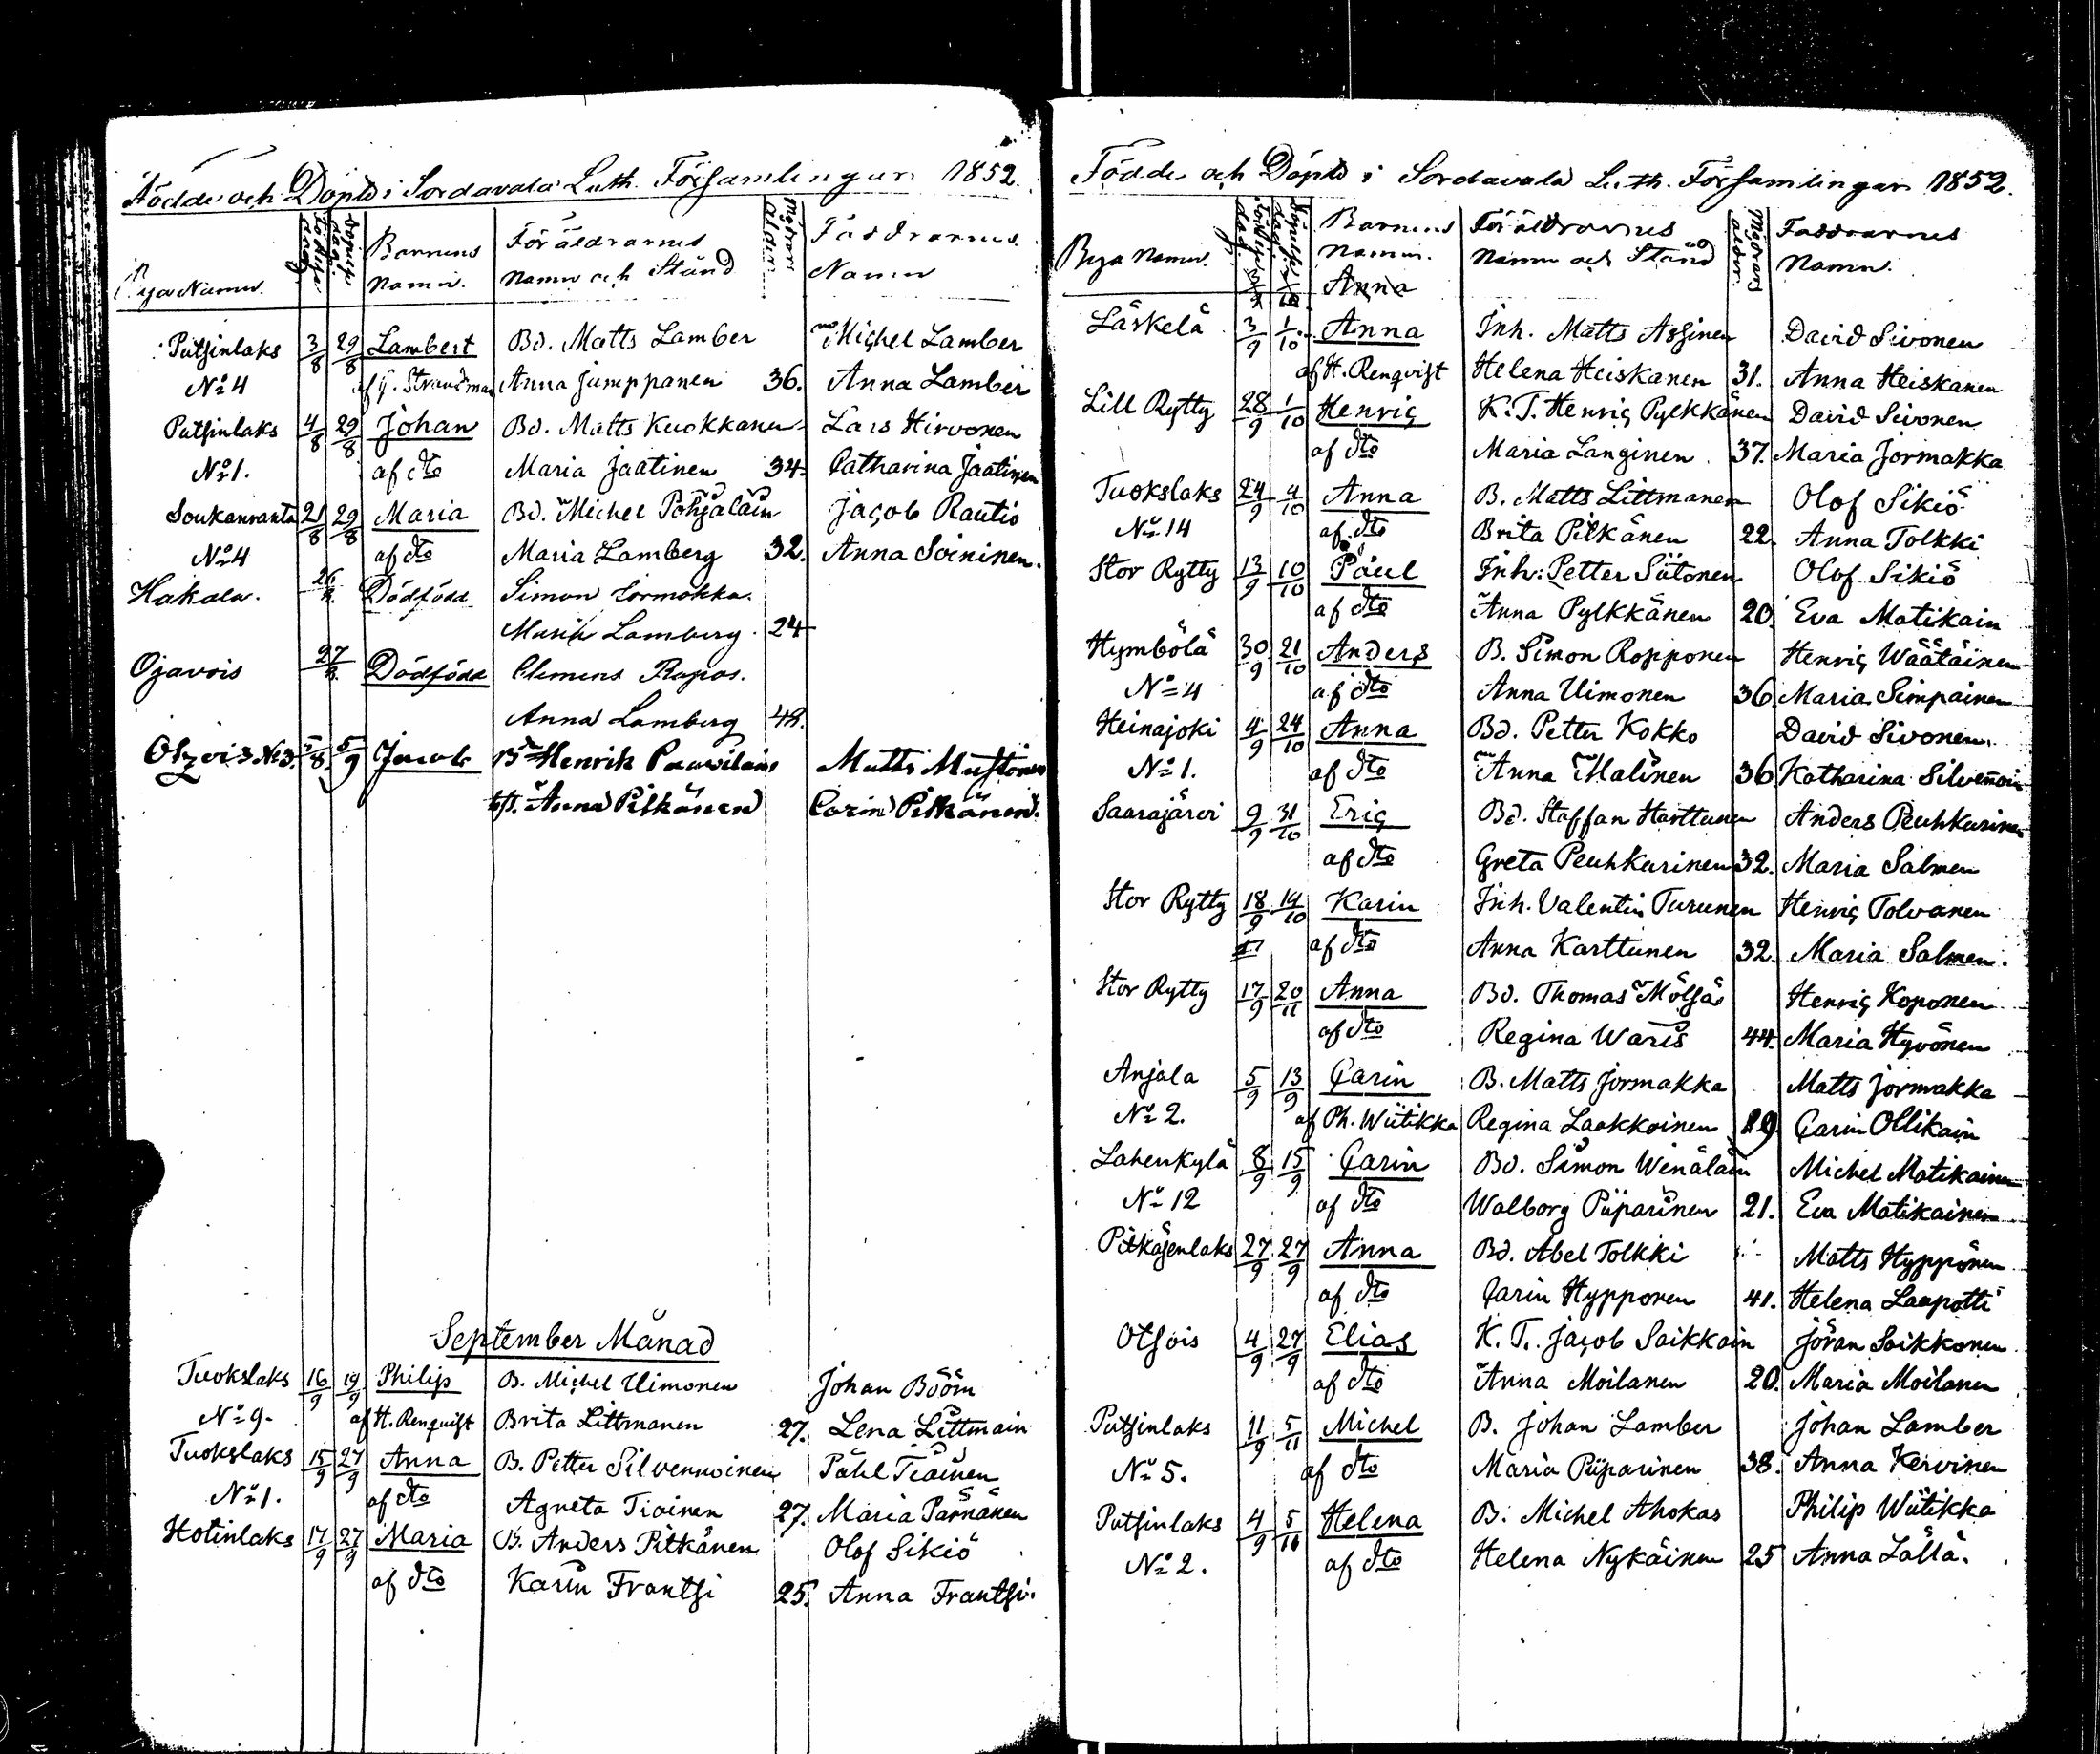 Födde och Döpte i Sordavala Luth. Församlingar 1852.
Bya Namn. Födelse dag. Döpelse dag. Barnens Namn. Föräldrarnes Namn och Stånd Modrens ålder. Faddrarnes Namn
Putsinlaks 3/8 29/8 Lambert Bd. Matts Lamber Michel Lamber
No 4 af G. Strandman Anna Jumppanen 36. Anna Lamber
Putsinlaks 4/8 29/8 Johan Bd. Matts Kuokkanen Lars Hirvonen
No 1. af dto Maria Jaatinen 34. Catharina Jaatinen
Soukanranta 21/8 29/8 Maria Bd. Michel Pohjalain Jacob Rautio
No 4 af dto Maria Lamberg 32. Anna Soininen.
Hakala. 26/8. Dödfödd Simon Jormakka.
Maria Lamberg. 24
Ojavois 27/8. Dödfödd Clemens Repos.
Anna Lamberg 42.
Otsois No 3. /8 5/9 Jacob Bd Henrik Paavilain Matts Mustonen
Anna Pitkänen Carin Pitkänen.
September Månad
Tuokslaks 16/9 19/9 Philip B. Michel Uimonen Johan Bööm
No 9. af H. Renquist Brita Littmanen 27. Lena Littmain
Tuokslaks 15/9 27/9 Anna B. Petter Silvennoinen Påhl Tiainen
No 1. af dto Agneta Tiainen 27. Maria Parnänen
Hotinlaks 17/9 27/9 Maria B. Anders Pitkänen Olof Sikiö
af dto Karin Frantsi 25. Anna Frantsi.
Födde och Döpte i Sordavala Luth. Församlingar 1852.
Bya Namn. Födelse dag. Döpelse dag. Barnens Namn. Föräldrarnes Namn och Stånd Modrens ålder. Faddrarnes Namn.
Anna
Läskelä 3/9 1/10 Anna Inh. Matts Assinen David Sivonen
af H. Renqvist Helena Heiskanen 31. Anna Heiskanen
Lill Rytty 28/9 1/10 Henric K. T. Henric Pylkkänen David Sivonen
af dto Maria Langinen 37. Maria Jormakka
Tuokslaks 24/9 4/10 Anna B. Matts Littmanen Olof Sikiö
No 14 af dto Brita Pitkänen 22. Anna Tolkki
Stor Rytty 13/9 10/10 Paul Inh: Petter Siitonen Olof Sikiö
af dto Anna Pylkkänen 20. Eva Matikain
Hymbölä 30/9 21/10 Anders B. Simon Ropponen Henric Wäätäinen
No 4 af dto Anna Uimonen 36 Maria Simpainen
Heinajoki 4/9 24/10 Anna Bd. Petter Kokko David Sivonen.
No 1. af dto Anna Malinen 36 Katharina Silvennoin
Saarajärvi 9/9 31/10 Eric Bd. Staffan Harttunen Anders Peuhkurinen
af dto Greta Peuhkurinen 32. Maria Salmen
Stor Rytty 18/9 14/10 Karin Inh. Valentin Turunen Henric Tolvanen
17 af dto Anna Karttunen 32. Maria Salmen.
Stor Rytty 17/9 20/11 Anna Bd. Thomas Mölsä Henric Koponen
af dto Regina Waris 44. Maria Hyvönen
Anjala 5/9 13/9 Carin B. Matts Jormakka Matts Jormakka
No 2. af Ph. Wiitikka Regina Laakkoinen 29 Carin Ollikain
Lahenkylä 8/9 15/9 Carin Bd. Simon Winäläin Michel Matikainen
No 12 af dto Walborg Piiparinen 21. Eva Matikainen
Pitkäjenlaks 27/9 27/9 Anna Bd. Abel Tolkki Matts Hyppönen
af dto Carin Hypponen 41. Helena Laapotti
Otsois 4/9 27/9 Elias K. T. Jacob Saikkain Jöran Saikkonen
af dto Anna Moilanen 20. Maria Moilanen
Putsinlaks 11/9 5/11 Michel B. Johan Lamber Johan Lamber
No 5. af dto Maria Piiparinen 38. Anna Kervinen
Putsinlaks 4/9 5/11 Helena B. Michel Ahokas Philip Wiitikka
No 2. af dto Helena Nykäinen 25 Anna Lällä.